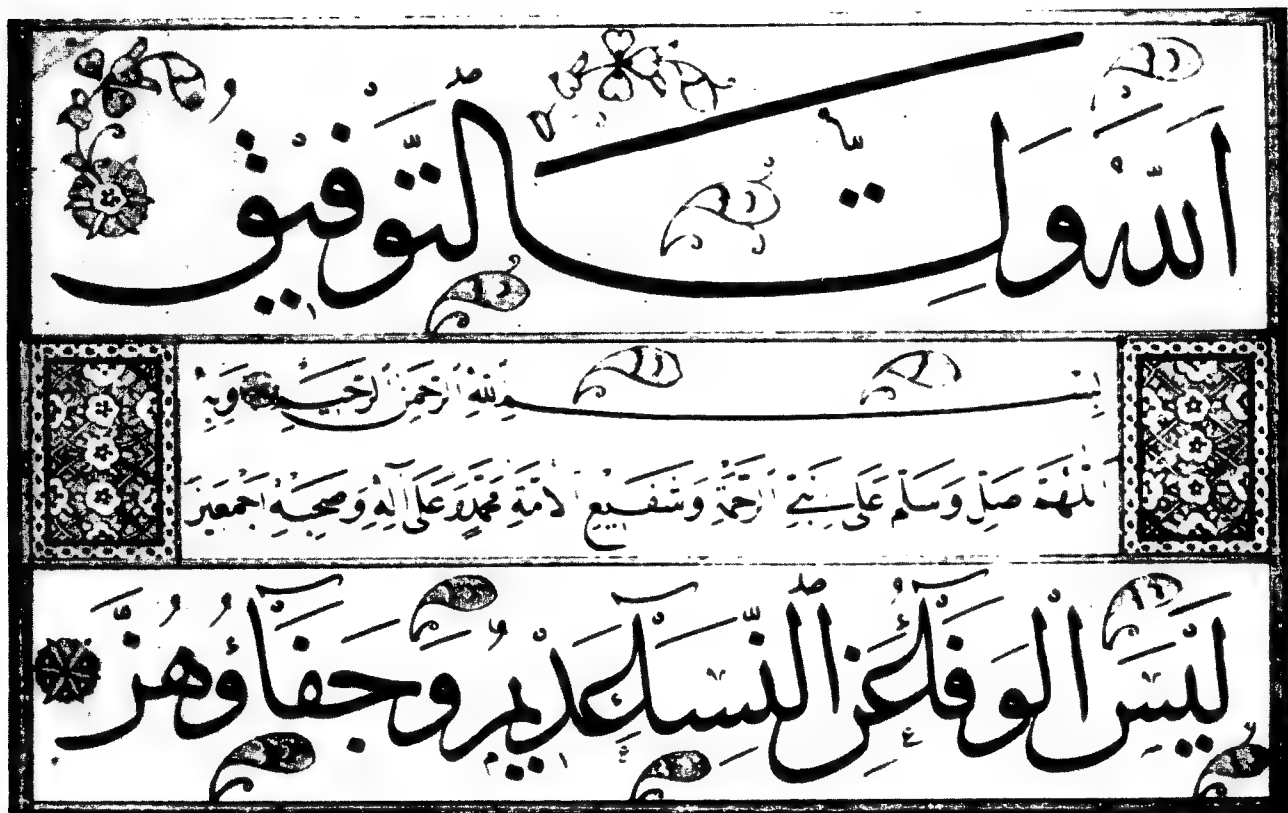 اَللّٰهُ وَلِيُّ التَّوْفِيْقِ
بِسْمِ اللّٰهِ الرَّحْمٰنِ الرَّحِيْمِ وَبِهِ
اَللّٰهُمَّ صَلِّ وَسَلِّمْ عَلٰى نَبِيِّ الرَّحْمَةِ وَشَفِيْعِ الْاُمَّةِ مُحَمَّدٍ وَعَلٰى آلِهِ وَصَحْبِهِ اَجْمَعِيْنَ
لَيْسَ الْوَفَآءُ عَنِ النِّسَآءِ عَدِيْمُ وَجَفَآؤُهُنَّ